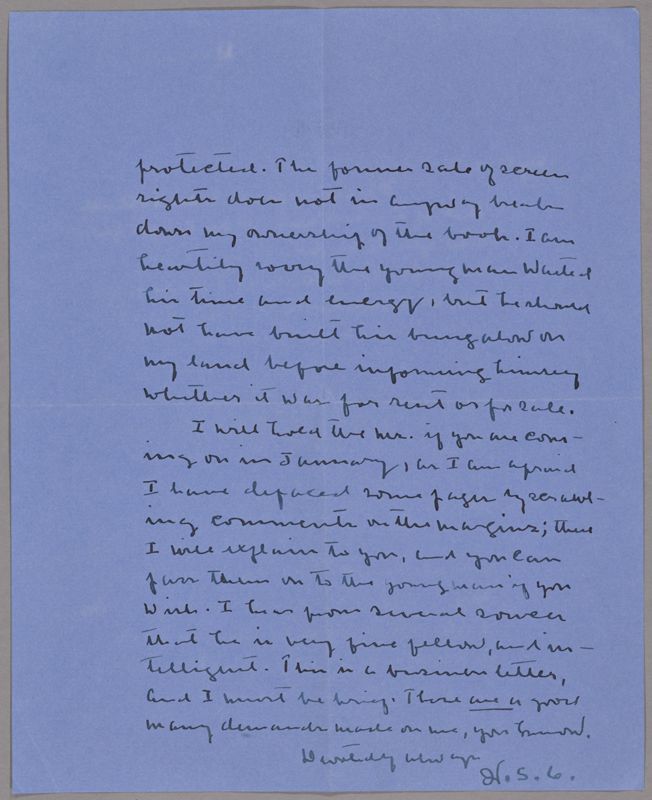 protected. The former sale of screen
rights does not in anyway break
down my ownership of the book. I am
heartily sorry the young man wasted
his time and energy, but he should
not have built his bungalow on
my land before informing himself
whether it was for rent or for sale.
I will hold the ms. if you are com-
ing on in January, as I am afraid
I have defaced some pages by scrawl-
ing comments on the margins; these
I will explain to you, and you can
pass them on to the young man if you
wish. I hear from several sources
that he is very fine fellow, and in-
telligent. This is a business letter,
and I must be brief. There are a good
many demands made on me, you know.
Devotedly always